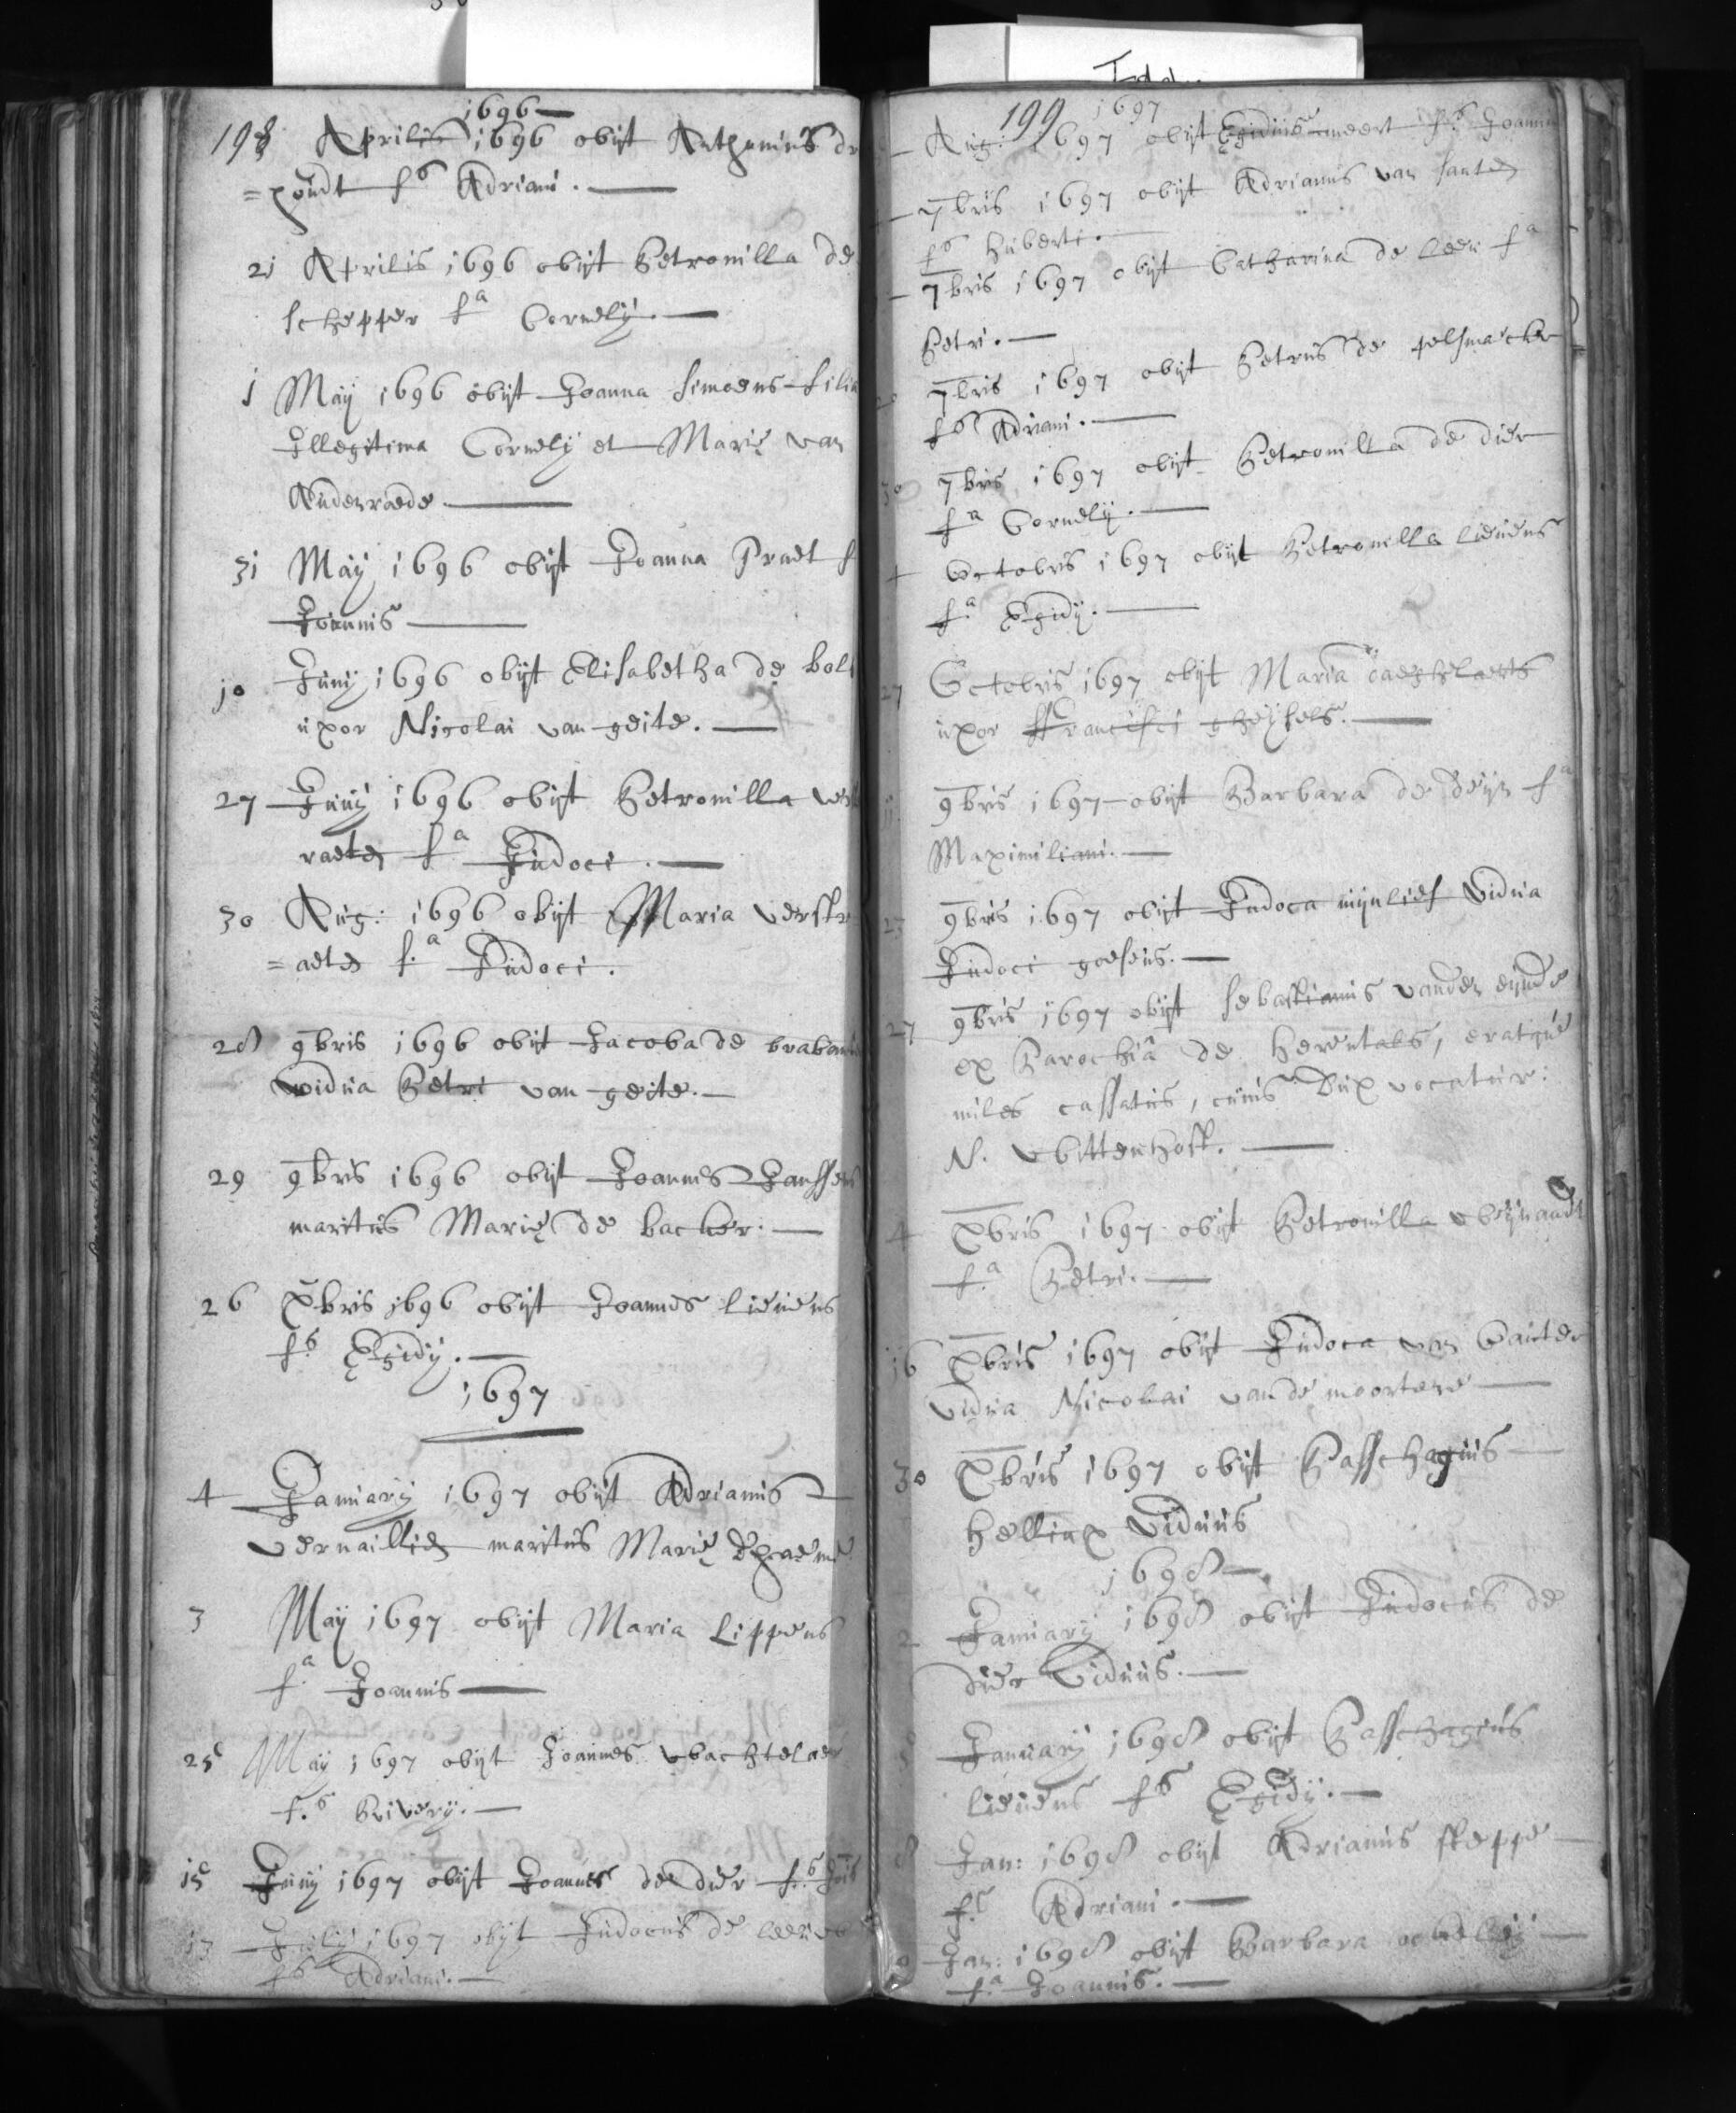 1696
198 Aprilis 1696 obijt Anthonius
=hondt fs Adriani.
21 Aprilis 1696 obijt Petronilla de
schepper fa Cornelij.
1 Maij 1696 obijt Joanna simoens filia
Illegitima Cornelij et Marię van
Audenraede
31 Maij 1696 obijt Joanna Praet f
Joannis
10 Junij 1696 obijt Elisabetha de
uxor Nicolai van geite.
27 Junij 1696 obijt Petronilla
raeten fa Judoci.
30 Aug: 1696 obijt Maria verstr
=aeten f.a Judoci.
28 9bris 1696 obijt Jacoba de
vidua Petri van geite.
29 9bris 1696 obijt Joannes Janssens
maritus Marię de backer.
26 Xbris 1696 obijt Joannes lieuens
fs Egidij.
1697
4 Januarij 1697 obijt Adrianus
vernaillien maritus Marię
3 Maij 1697 obijt Maria Lippens
f.a Joannis
25 Maij 1697 obijt Joannes
f.s
15 Junij 1697 obijt Joannes de dier f.s Jois
13 Julij 1697 obijt Judocus de
fs Adriani.
199 1697
Aug: 1697 obijt Egidius fs
7bris 1697 obijt Adrianus van santen
fs huberti.
7bris 1697 obijt Catharina de leeu fa
Petri.
7bris 1697 obijt Petrus de pelsmacker
fs Adriani.
30 7bris 1697 obijt Petronilla de dier
fa Cornelij.
Octobris 1697 obijt Petronilla lieuens
f.a Egidij.
27 Octobris 1697 obijt Maria
uxor Francisci gheijsels.
11 9bris 1697 obijt Barbara de deijn fa
Maximiliani.
23 9bris 1697 obijt Judoca mijnlief vidua
Judoci goesens.
27 9bris 1697 obijt sebastianus vanden eijnde
ex Parochiâ de herentals, eratque
miles cassatus, cuius Dux vocatur:
N. wbittenhoft.
4 Xbris 1697 obijt Petronilla
f.a Petri.
16 Xbris 1697 obijt Judoca van
vidua Nicolai vande moortere
30 Xbris 1697 obijt Passchagius
hellinx viduus
1698
2 Januarij 1698 obijt Judocus de
dier viduus.
Januarij 1698 obijt Passchagius
lieuens fs Egidij.
8 Jan: 1698 obijt Adrianus steppe
fs Adriani.
Jan: 1698 obijt Barbara
f.a Joannis.